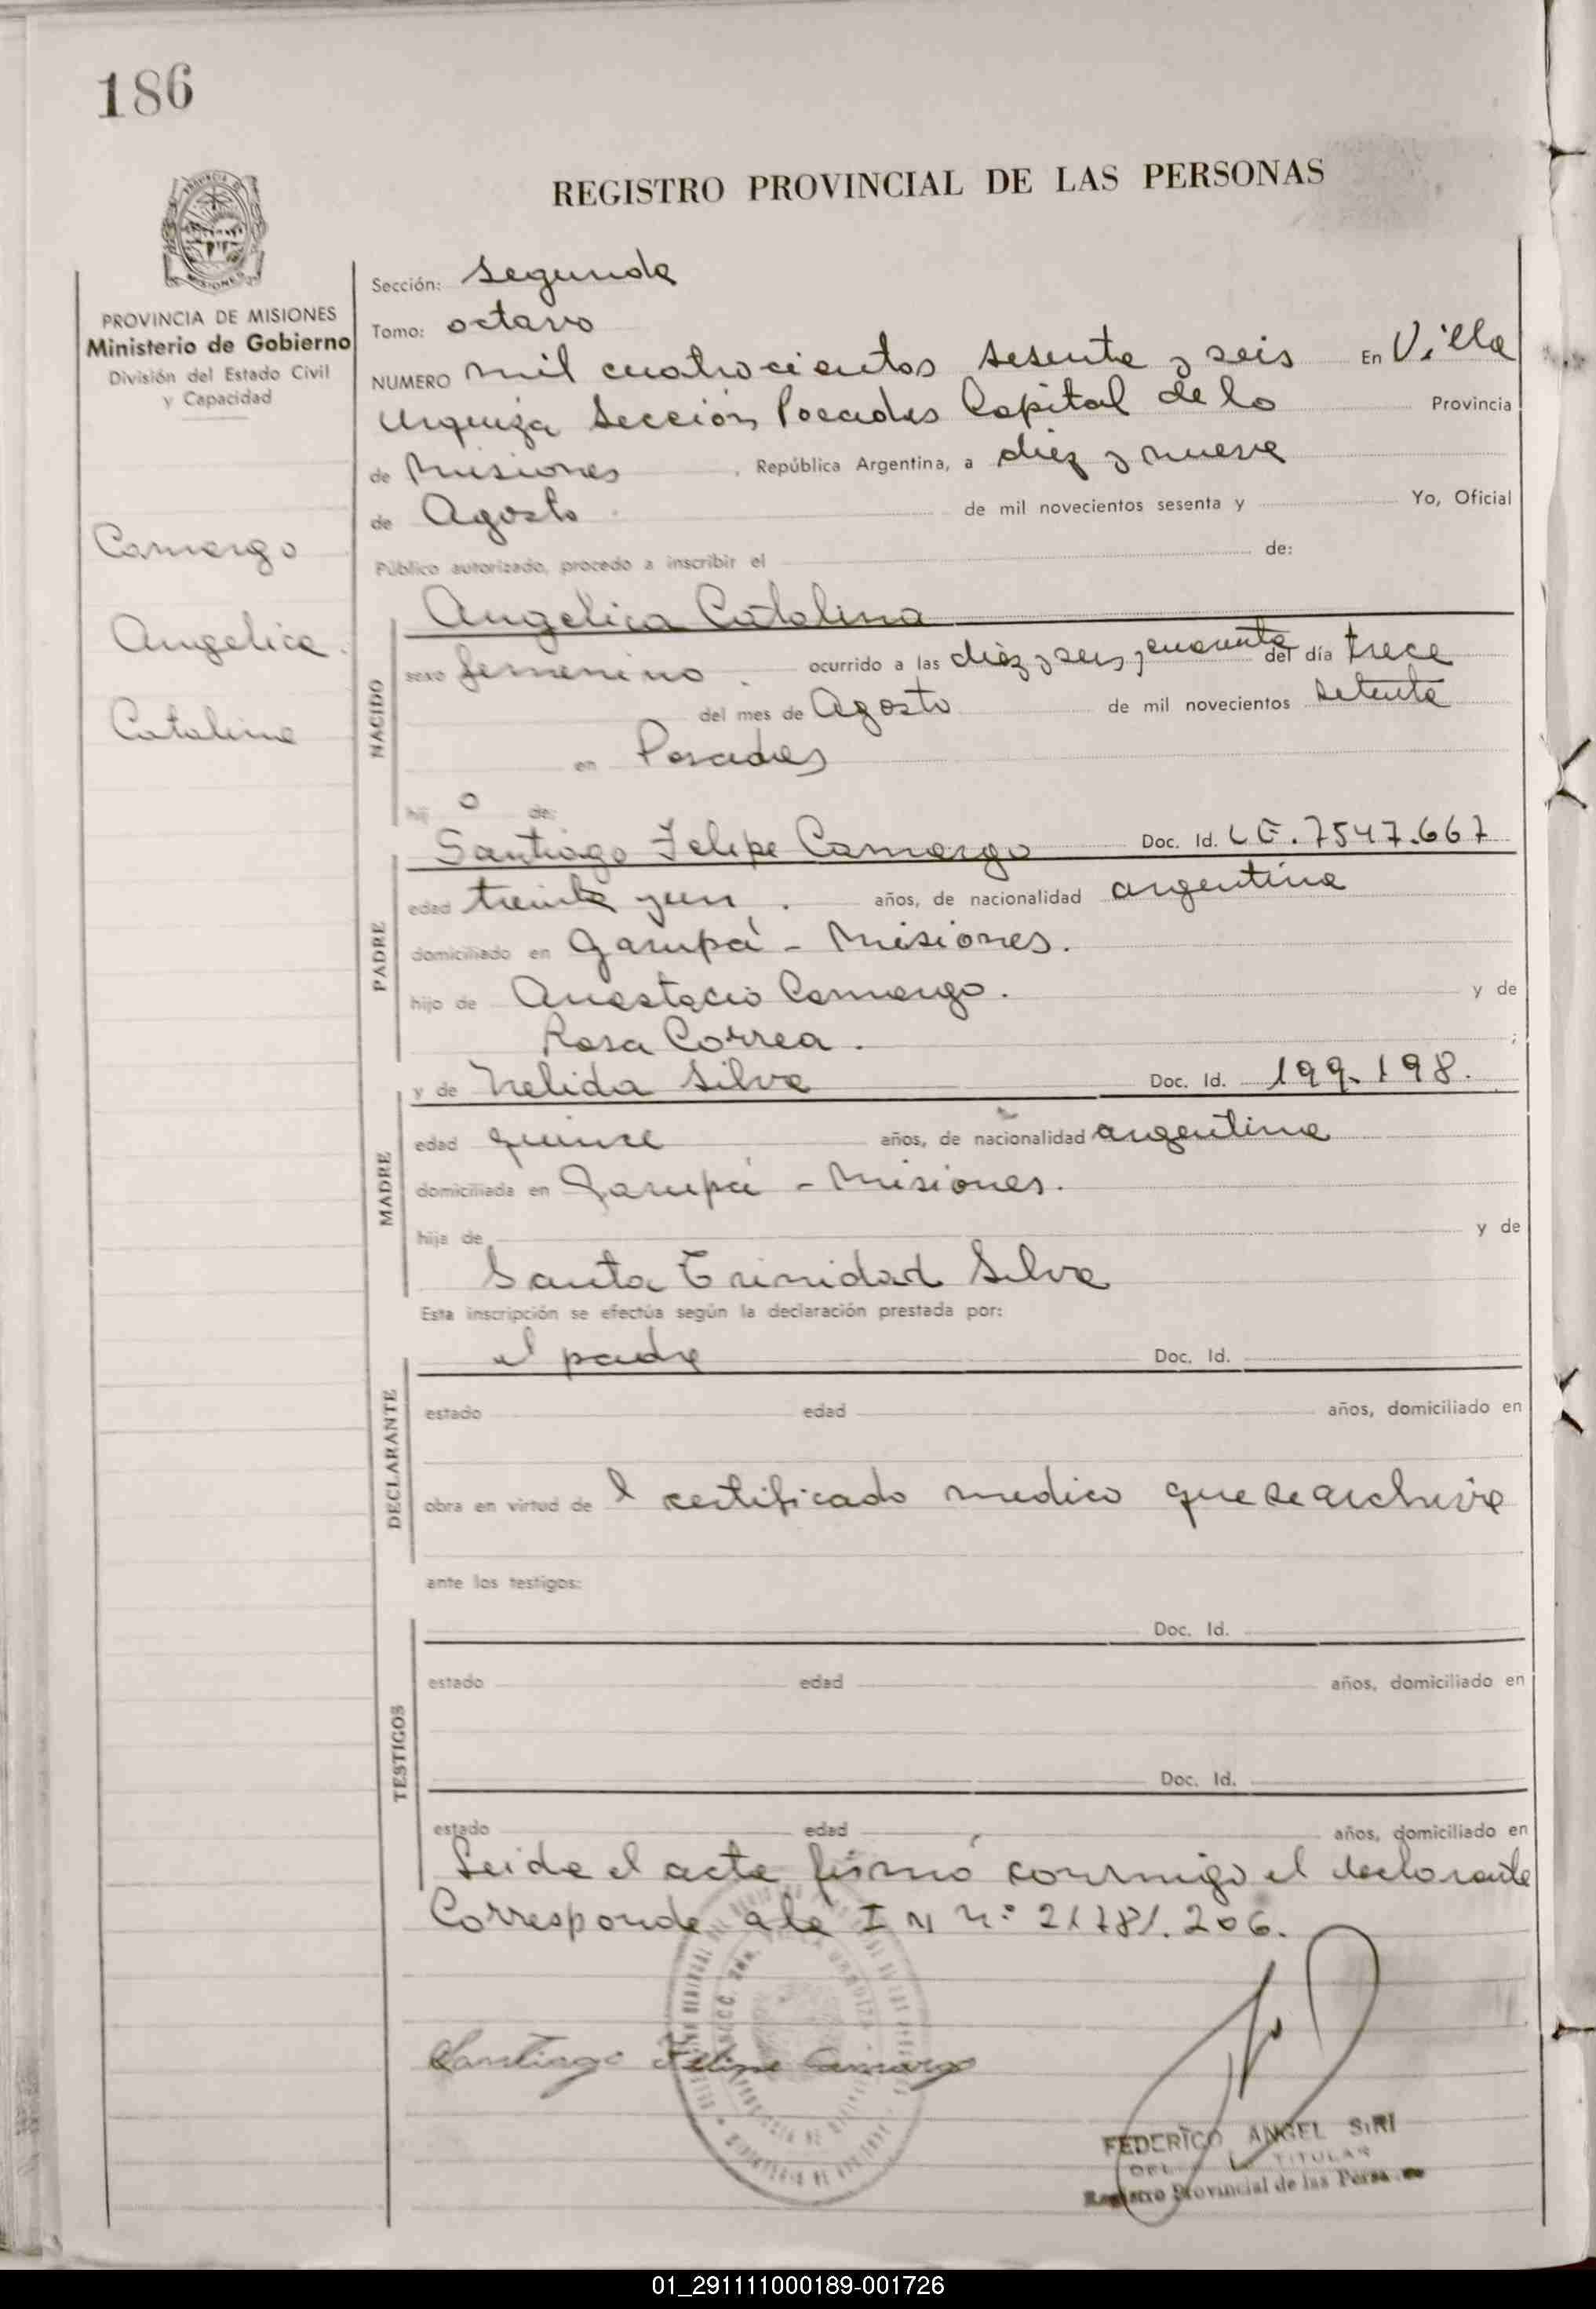 186
REGISTRO PROVINCIAL DE LAS PERSONAS
PROVINCIA DE MISIONES
Ministerio de Gobierno
División del Estado Civil
y Capacidad
Camargo
Angelica
Catalina
Sección: Segunda
Tomo: octavo
NUMERO mil cuatrocientos sesenta y seis En Villa
Urquiza Sección Posadas Capital de la Provincia
de Misiones, República Argentina, a diez y nueve
de Agosto de mil novecientos sesenta y Yo, Oficial
Público autorizado, procedo a inscribir el de:
Angelica Catalina
NACIDO
sexo femenino. ocurrido a las diez y seis y cuarenta del día trece
del mes de Agosto de mil novecientos setenta
en Posadas
hij o de:
Santiago Felipe Camargo Doc. Id. L E. 7547.667
PADRE
edad treinta y un. años, de nacionalidad argentina
domiciliado en Garupá - Misiones.
hijo de Anastacio Camargo. y de
Rosa Correa. ;
y de Nelida Silva Doc. Id. 199.198.
MADRE
edad quince años, de nacionalidad argentina
domiciliada en Garupá - Misiones.
hija de y de
Santa Trinidad Silva
Esta inscripción se efectúa según la declaración prestada por:
el padre Doc. Id.
DECLARANTE
estado edad años, domiciliado en
obra en virtud de l certificado medico que se archiva
ante los testigos:
Doc. Id.
TESTIGOS
estado edad años, domiciliado en
Doc. Id.
estado edad años, domiciliado en
Leida el acta firmó conmigo el declarante
Corresponde a la I M n° 21781.206.
Santiago Felipe Camargo
FEDERICO ANGEL SIRI
TITULAR
Registro Provincial de las Personas
01_291111000189-001726